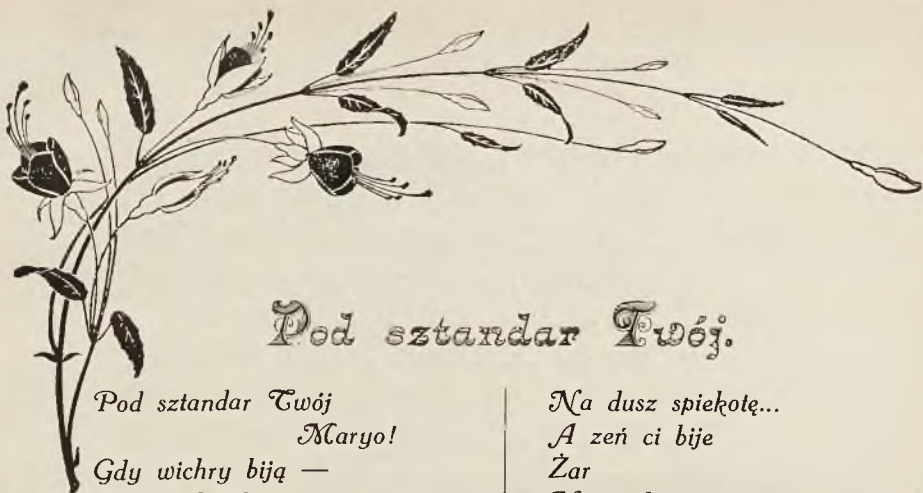 Pod sztandar Twój.
Pod sztandar Twój
Maryo!
Gdy wichry biją —
Na dusz spiekotę...
A zeń ci bije
Żar